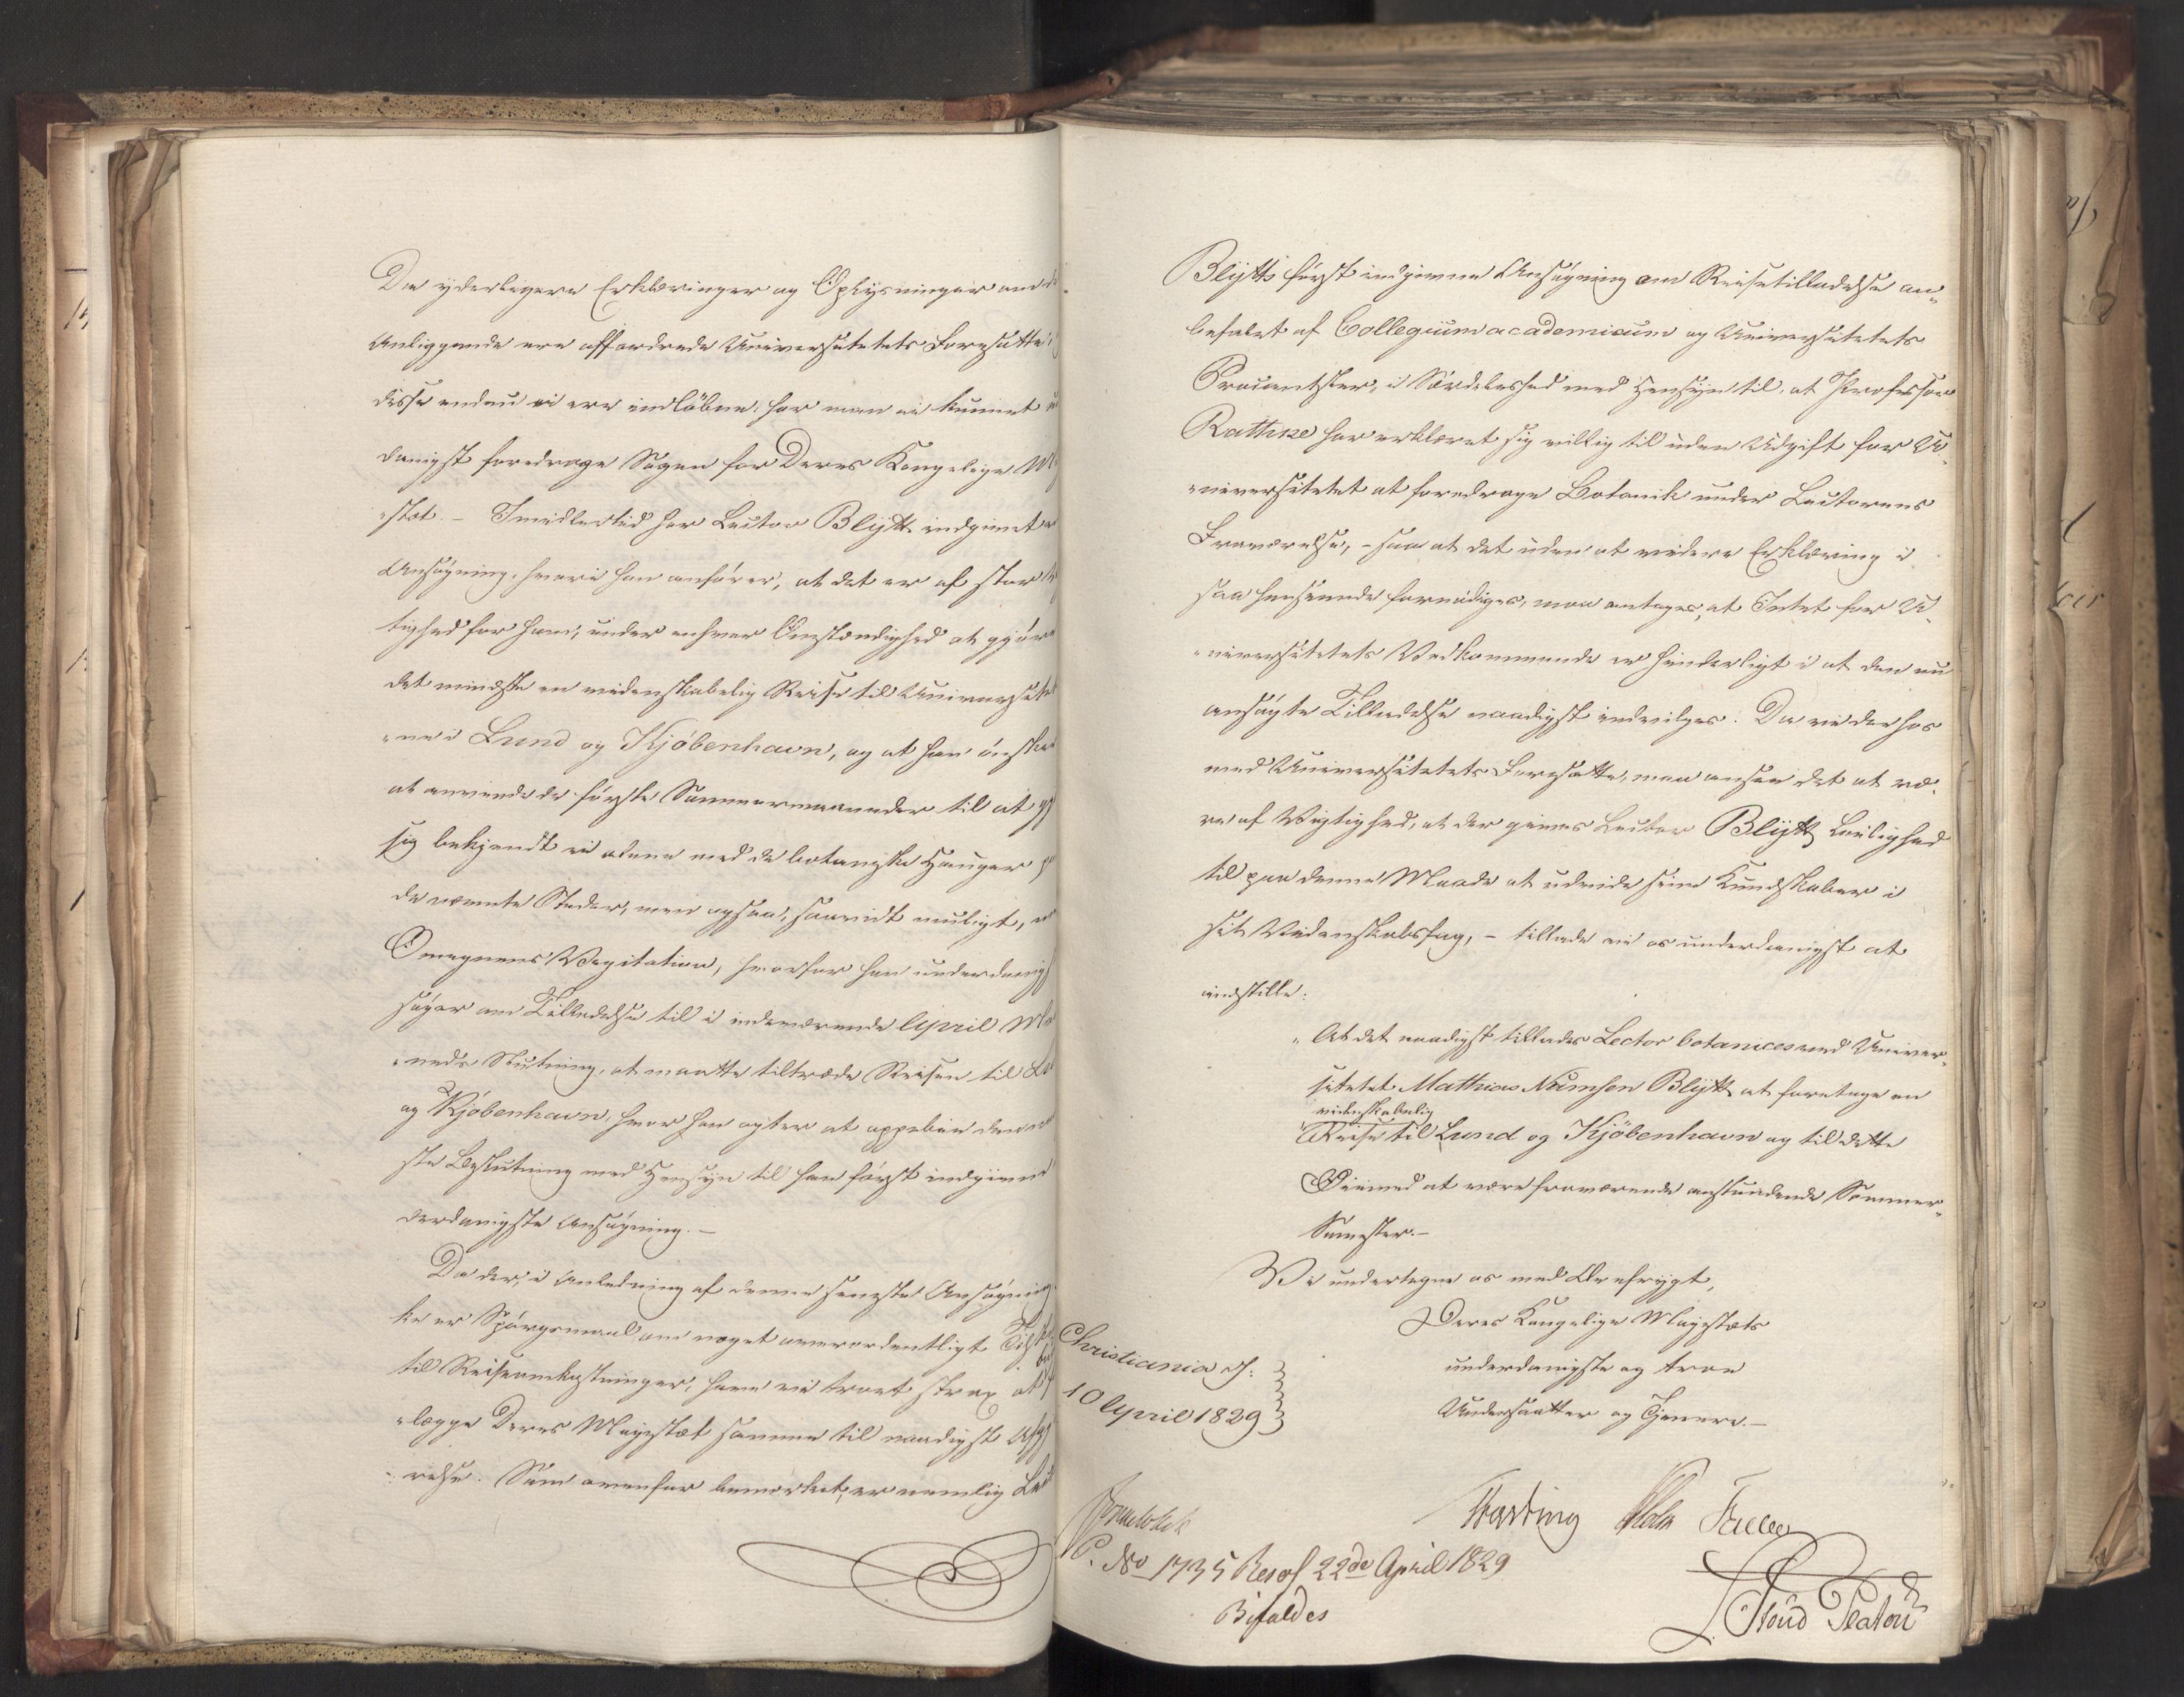 Da yderligere Erklæringer og Oplysninger om d
Anliggende ere affordrede Universitetets Foresatte,
disse endnu ei ere indløbne, har man ei kunnet u
danigst foredrage Sagen for Deres Kongelige M
„stæt. – Imidlertid har Lector Blytt indgivet e
Ansøgning, hvori han anfører, at det er af stor V
tighed for ham, under enhver Omstændighed at gjøre
det mindste en videnskabelig Reise til Universitet
„ne i Lund og Kjøbenhavn, og at han ønsker
at anvende de første Sommermaaneder til at gj
sig bekjendt ei alene med de botaniske Hauger p
de nævnte Steder, men ogsaa, saavidt muligt, m
Omegnens Vegitation, hvorfor han underdanigs
søger om Tilladelse til i indeværende April Ma
„neds Slutning, at maatte tiltræde Reisen til Lu
og Kjøbenhavn, hvor han agter at oppebie den n
ste Beslutning med Hensyn til hans først indgivne
derdanigste Ansøgning. –
Da der, i Anledning af denne seneste Ansøgning,
ke er Spørgsmaal om noget overordentligt Tilsk
bi
til Reiseomkostninger, have vi troet strax at f
„lægge Deres Majestæt samme til naadigst Afgj
„relse. Som ovenfor bemærket, er nemlig Lec
Blytt's først indgivne Ansøgning om Reisetilladelse an„
befalet af Collegium academicum og Universitetets
Procantsler, i Særdeleshed med Hensyn til, at Professor
Rathke har erklæret sig villig til uden Udgift for U„
„niversitetet at foredrage Botanik under Lectorens
Fraværelse, – saa at det uden at videre Erklæring i
saa Henseende fornødiges, maa antages, at Intet for U„
„niversitetets Vedkommende er hinderligt i at den nu
ansøgte Tilladelse naadigst indvilges. Da vi derhos
med Universitetets Foresatte, maa ansee det at væ„
re af Vigtighed, at der gives Lector Blytt Leilighed
til paa denne Maade at udvide sine Kundskaber i
sit Videnskabsfag, – tillade vi os underdanigst at
indstille:
„At det naadigst tillades Lector botanices ved Univer„
sitetet Mathias Numsen Blytt at foretage en
videnskabelig
Reise til Lund og Kjøbenhavn og til dette
Øiemed at være fraværende anstundende Sommer„
Semester. –
Vi undertegne os med Ærefrygt,
Deres Kongelige Majestæts
underdanigste og troe
Undersaatter og Tjenere. –
Christiania d.
10 April 1829
Motzfeldt
Fasting Holst Falsen
P. No 1735 Resol 22de April 1829
Bifaldes